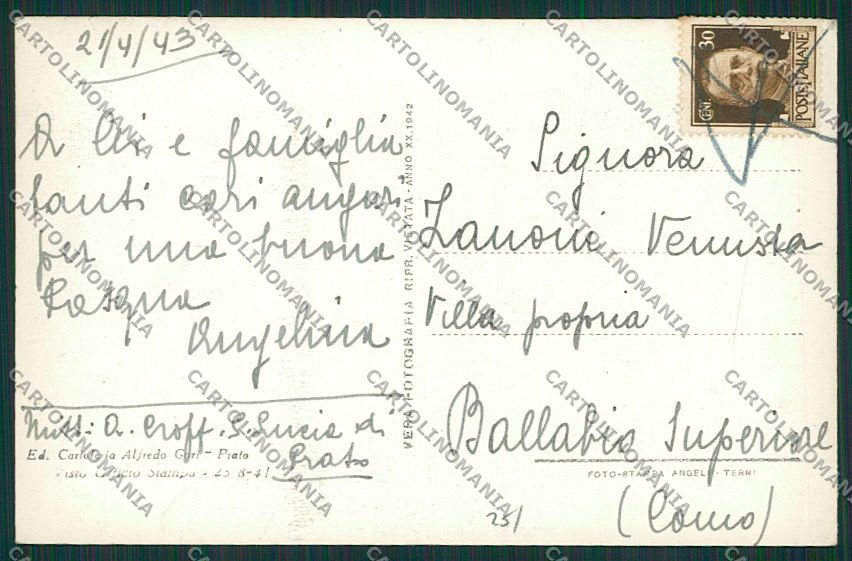 21/4/43
A Lei e famiglia
tanti cari auguri
per una buona
Pasqua
Angelina
Mitt: A. Croff. S. Lucia di
Prato
Ed. Cartoleria Alfredo Gori - Prato
Visto Ufficio Stampa - 25-8-41
VERA FOTOGRAFIA RIPR. VIETATA - ANNO XX.1942
CENT. 30
POSTE ITALIANE
Signora
Zanoni Venusta
Villa propria
Ballabio Superiore
FOTO-STAMPA ANGELI - TERNI
(Como)
25/
CARTOLINOMANIA